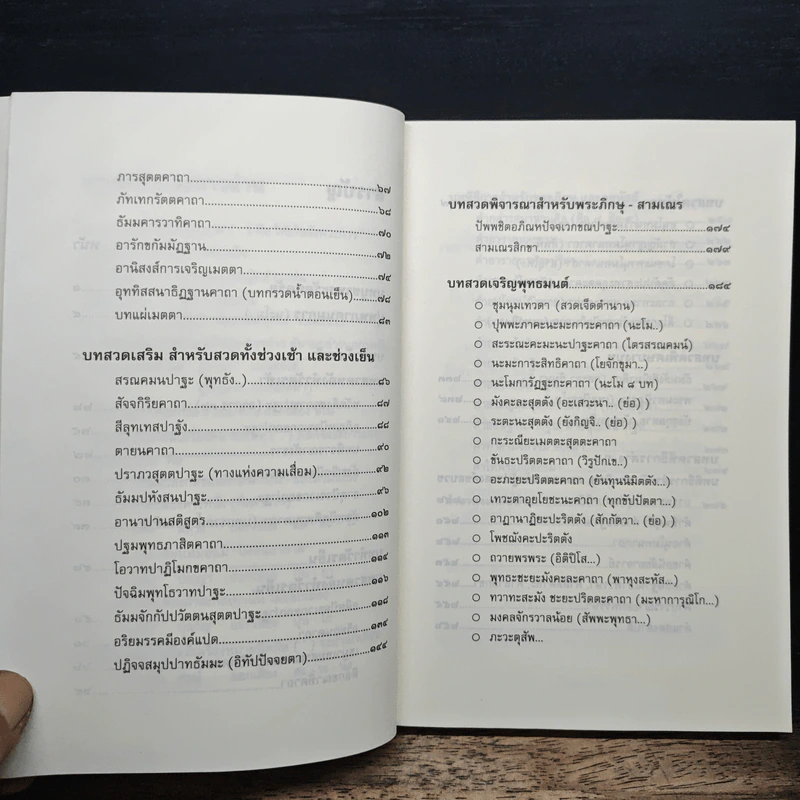 ภารสุตตคาถา....................................................๖๗
ภัทเทกรัตตคาถา................................................๖๘
ธัมมคารวาทิคาถา..............................................๗๐
อารักขกัมมัฏฐาน...............................................๗๒
อานิสงส์การเจริญเมตตา.....................................๗๔
อุททิสสนาธิฏฐานคาถา (บทกรวดน้ำตอนเย็น)......๗๘
บทแผ่เมตตา.....................................................๘๓
บทสวดเสริม สำหรับสวดทั้งช่วงเช้า และช่วงเย็น
สรณคมนปาฐะ (พุทธัง..)....................................๘๖
สัจจกิริยคาถา....................................................๘๗
สีลุทเทสปาฐัง...................................................๘๘
ตายนคาถา........................................................๙๐
ปราภวสุตตปาฐะ (ทางแห่งความเสื่อม).................๙๒
ธัมมปหังสนปาฐะ...............................................๙๖
อานาปานสติสูตร..............................................๑๐๒
ปฐมพุทธภาสิตคาถา.........................................๑๑๓
โอวาทปาฏิโมกขคาถา........................................๑๑๔
ปัจฉิมพุทโธวาทปาฐะ........................................๑๑๖
ธัมมจักกัปปวัตตนสุตตปาฐะ................................๑๑๘
อริยมรรคมีองค์แปด...........................................๑๓๔
ปฏิจจสมุปปาทธัมมะ (อิทัปปัจจยตา)...................๑๔๔
บทสวดพิจารณาสำหรับพระภิกษุ - สามเณร
ปัพพชิตอภิณหปัจจเวกขณปาฐะ........................๑๗๔
สามเณรสิกขา..................................................๑๗๙
บทสวดเจริญพุทธมนต์........................................๑๘๔
○ ชุมนุมเทวดา (สวดเจ็ดตำนาน)
○ ปุพพะภาคะนะมะการะคาถา (นะโม..)
○ สะระณะคะมะนะปาฐะคาถา (ไตรสรณคมน์)
○ นะมะการะสิทธิคาถา (โยจักขุมา..)
○ นะโมการัฏฐะกะคาถา (นะโม ๘ บท)
○ มังคะละสุตตัง (อะเสวะนา.. (ย่อ) )
○ ระตะนะสุตตัง (ยังกิญจิ.. (ย่อ) )
○ กะระณียะเมตตะสุตตะคาถา
○ ขันธะปริตตะคาถา (วิรูปักเข..)
○ อะภะยะปริตตะคาถา (ยันทุนนิมิตตัง...)
○ เทวะตาอุยโยชะนะคาถา (ทุกขัปปัตตา...)
○ อาฏานาฏิยะปะริตตัง (สักกัตวา.. (ย่อ) )
○ โพชฌังคะปะริตตัง
○ ถวายพรพระ (อิติปิโส...)
○ พุทธะชะยะมังคะละคาถา (พาหุงสะหัส...)
○ ทวาทะสะมัง ชะยะปริตตะคาถา (มะหาการุณิโก...)
○ มงคลจักรวาลน้อย (สัพพะพุทธา...)
○ ภะวะตุสัพ...